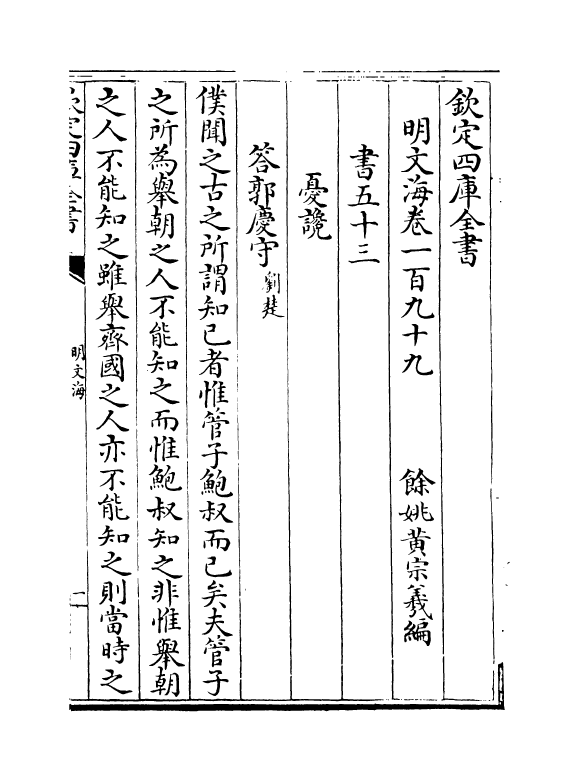 欽定四庫全書
明文海卷一百九十九
餘姚黄宗羲編
書五十三
憂讒
答郭慶守 劉楚
僕聞之古之所謂知已者惟管子鮑叔而已矣夫管子
之所為舉朝之人不能知之而惟鮑叔知之非惟舉朝
之人不能知之雖舉齊國之人亦不能知之則當時之
欽定四庫全書
明文海